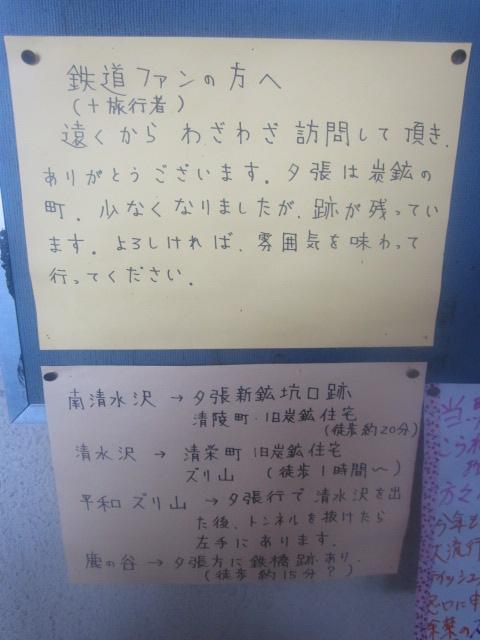 鉄道ファンの方へ
(+旅行者)
遠くから わざわざ 訪問して頂き、
ありがとうございます。夕張は炭鉱の
町。少なくなりましたが、跡が残ってい
ます。よろしければ、雰囲気を味わって
行ってください。
南清水沢 → 夕張新鉱坑口跡
清陵町・旧炭鉱住宅
(徒歩約20分)
清水沢 → 清栄町旧炭鉱住宅
ズリ山 (徒歩1時間〜)
平和ズリ山 → 夕張行で清水沢を出
た後、トンネルを抜けたら
左手にあります。
鹿の谷 → 夕張方に鉄橋跡あり。
(徒歩約15分?)
こうね
方々
今年も
大流行
窓口に申